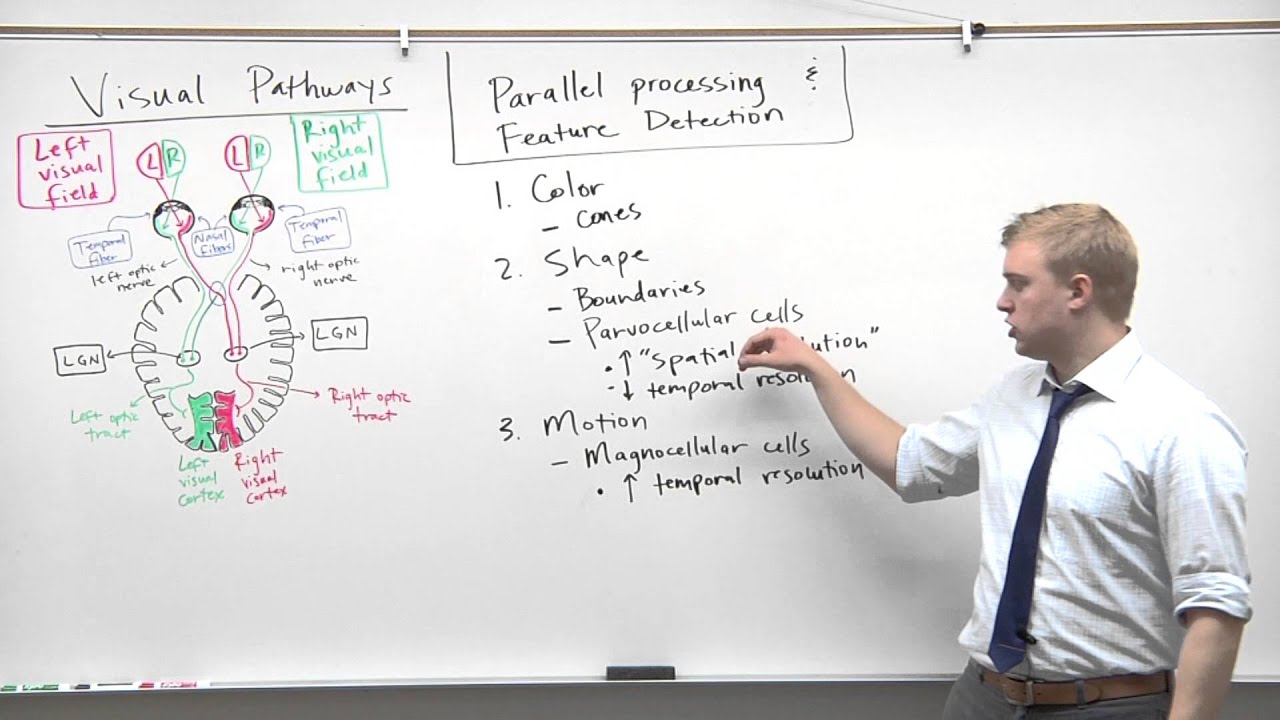 Visual Pathways
Left
visual
field
L R
L R
Right
visual
field
Temporal
fiber
Nasal
fibers
Temporal
fiber
left optic
nerve
right optic
nerve
LGN
LGN
Left optic
tract
Right optic
tract
Left
visual
cortex
Right
visual
cortex
Parallel processing &
Feature Detection
1. Color
– cones
2. Shape
– Boundaries
– Parvocellular cells
• ↑ "spatial lution"
• ↓ temporal resolution
3. Motion
– Magnocellular cells
• ↑ temporal resolution